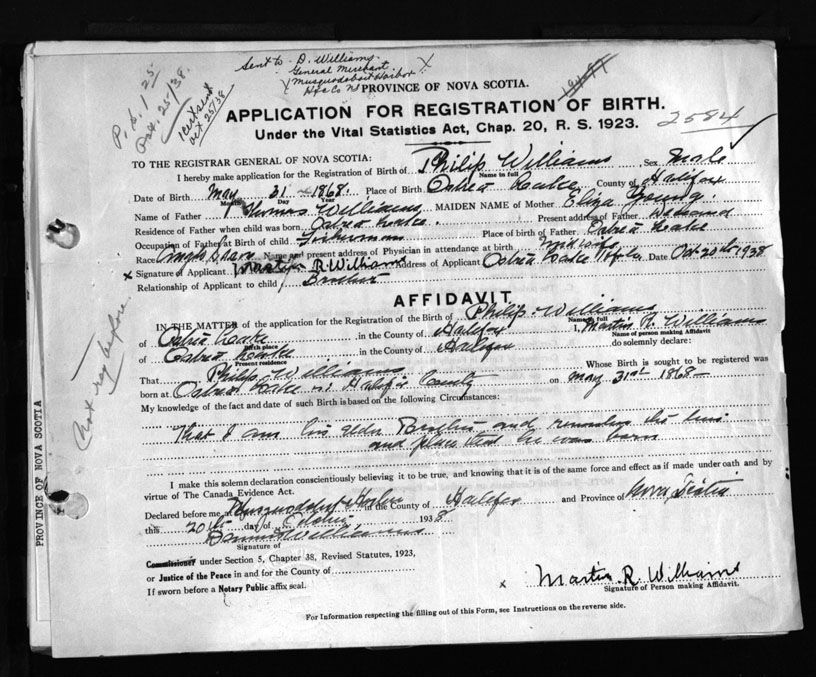 Sent to D. Williams
General Merchant
Musquodoboit Harbor
Hfx Co NS
P. d. 1.25
Oct. 25/38.
1 cert sent
Oct 25/38
PROVINCE OF NOVA SCOTIA.
APPLICATION FOR REGISTRATION OF BIRTH.
2584
Under the Vital Statistics Act, Chap. 20, R. S. 1923.
TO THE REGISTRAR GENERAL OF NOVA SCOTIA:
I hereby make application for the Registration of Birth of Philip Williams Sex Male
Name in full
Date of Birth May 31 - 1868. Place of Birth Ostrea Lake County of Halifax
Month Day Year
Name of Father Thomas Williams MAIDEN NAME of Mother Eliza Young
Residence of Father when child was born Ostrea Lake Present address of Father Deceased
Occupation of Father at Birth of child Fisherman Place of birth of Father Ostrea Lake
Race Name and present address of Physician in attendance at birth Midwife
x Signature of Applicant Martin R. Williams Address of Applicant Ostrea Lake Hfx Co Date Oct 20th 1938
Relationship of Applicant to child Brother
AFFIDAVIT.
IN THE MATTER of the application for the Registration of the Birth of Philip Williams
Name in full
of Ostrea Lake in the County of Halifax I, Martin R. Williams
Birth place Name of person making Affidavit
of Ostrea Lake in the County of Halifax do solemnly declare:
Present residence
That Philip Williams Whose Birth is sought to be registered was
born at Ostrea Lake in Halifax County on May 31st 1868-
My knowledge of the fact and date of such Birth is based on the following Circumstances:
That I am his elder Brother and remember the time
and place that he was born
I make this solemn declaration conscientiously believing it to be true, and knowing that it is of the same force and effect as if made under oath and by
virtue of The Canada Evidence Act.
Declared before me at Musquodoboit Harbor in the County of Halifax and Province of Nova Scotia
this 20th day of October 1938
Dennis Williams
Signature of
Commissioner under Section 5, Chapter 38, Revised Statutes, 1923,
or Justice of the Peace in and for the County of
If sworn before a Notary Public affix seal.
x Martin R. Williams
Signature of Person making Affidavit.
For Information respecting the filling out of this Form, see Instructions on the reverse side.
Not reg before
PROVINCE OF NOVA SCOTIA